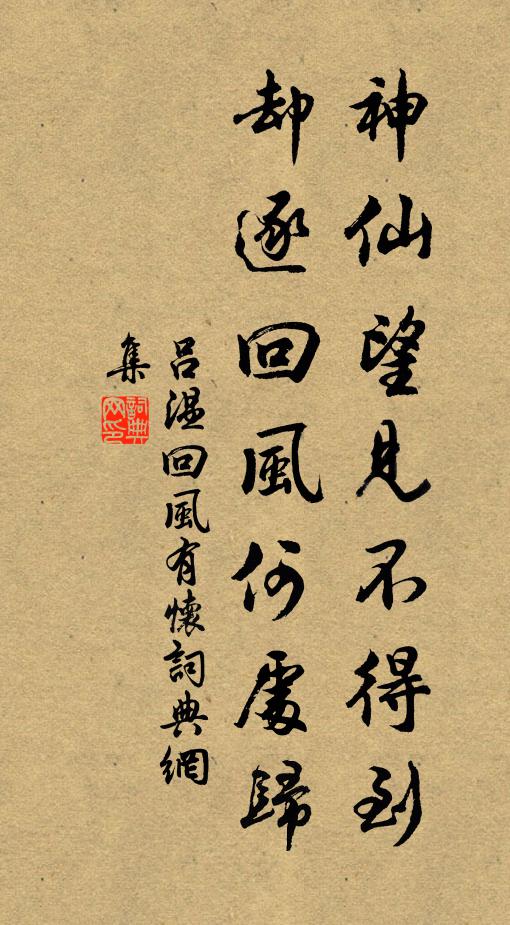 神仙望見不得到
却逐回風何處歸
吕溫回風有懷詞典網
集
詞典网印